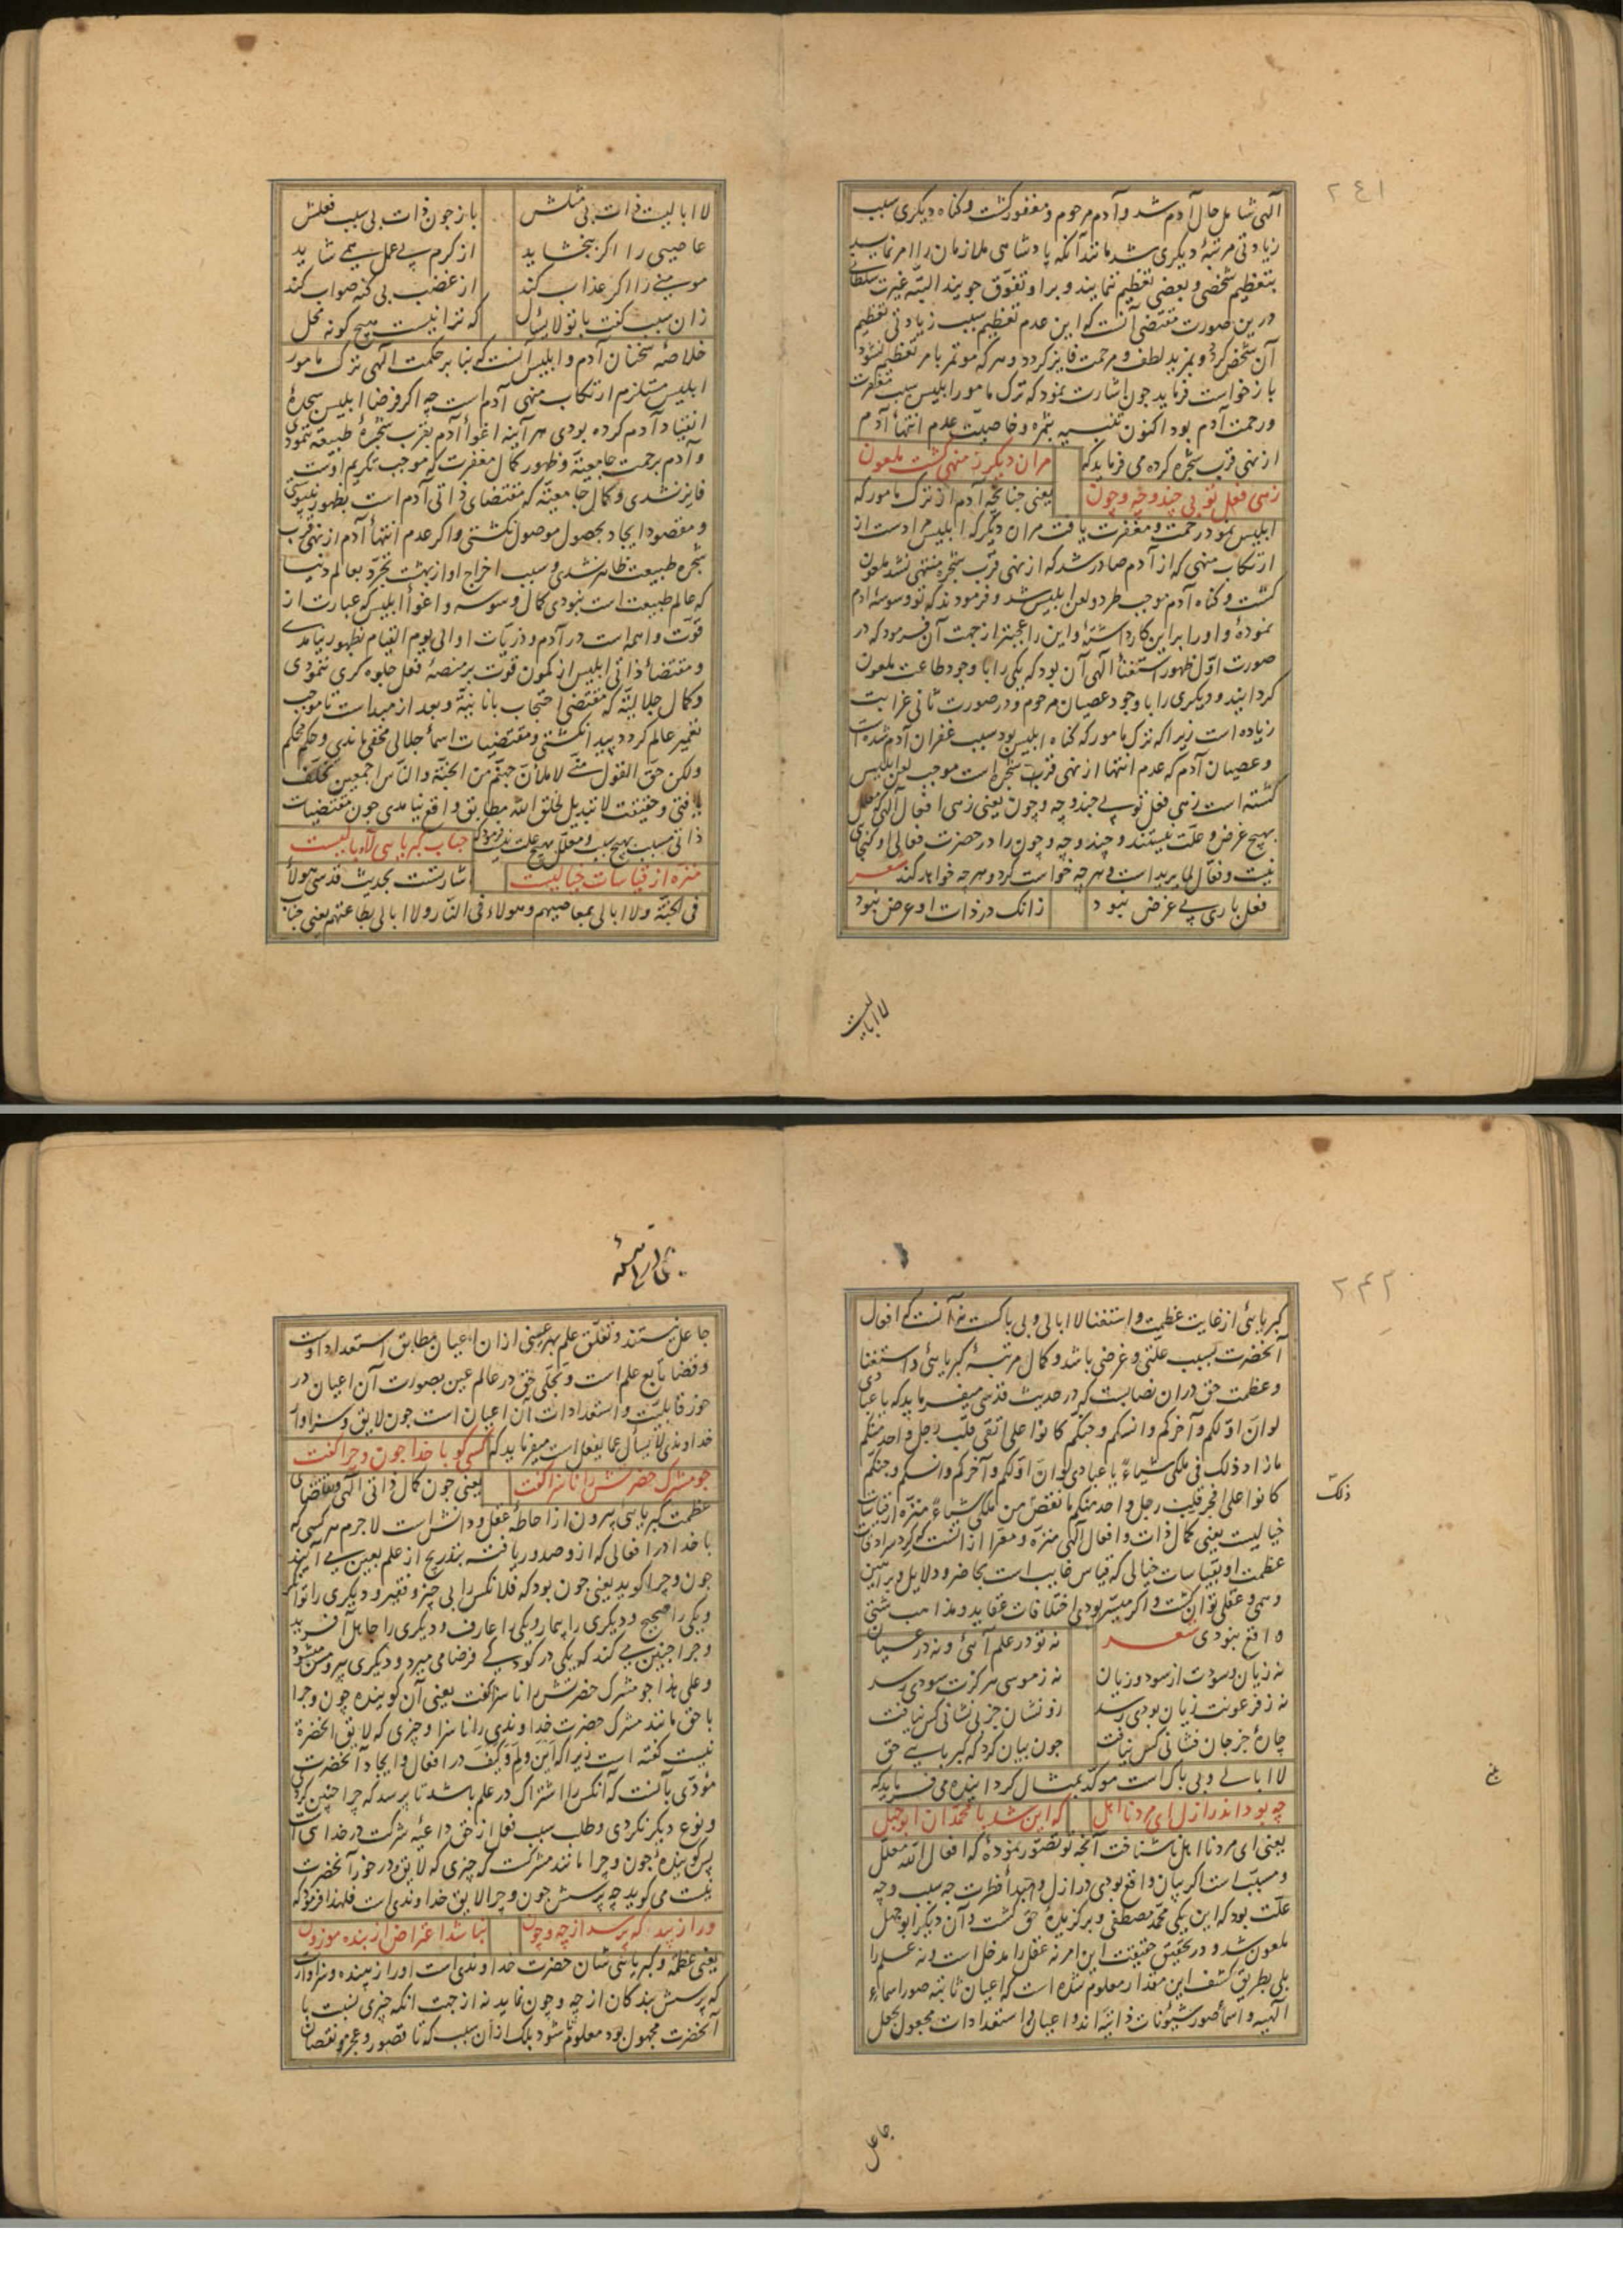 ٢٤١
آلهی شامل حال آدم شد و آدم مرحوم و مغفور کشت و کناه دیکری سبب
زیادتی مرتبۀ دیکری شد مانند آنکه پادشاهی ملازمان را امر نماید
بتعظیم شخصی و بعضی تعظیم ننمایند و براو تفوّق جویند البتّه غیرت سلطانی
درین صورت مقتضی آنست که این عدم تعظیم سبب زیادتی تعظیم
آن شخص کردد و بمزید لطف و مرحمت فایز کردد و هرکه موتمر بامر تعظیم نشود
بازخواست فرماید جون اشارت نمود که ترک مامور ابلیس سبب مغفرت
ورحمت آدم بود اکنون تنبیه بثمره وخاصیّت عدم انتهاء آدم
از نهی قرب شجره کرده می فرماید که
مران دیکر ز منهی کشت ملعون
زهی فعل تو بی چند و چه و چون
یعنی جنانچه آدم از ترک مامور که
ابلیس نمود رحمت و مغفرت یافت مران دیکر که ابلیس مراد ست از
ارتکاب منهی که از آدم صادر شد که از نهی قرب شجره منتهی نشد ملعون
کشت و کناه آدم موجب طرد و لعن ابلیس شد و فرمودند که تو وسوسۀ آدم
نمودۀ و اورا براین کار داشتۀ و این را عجبتر از جهت آن فرمود که در
صورت اوّل ظهور استغناء الهی آن بود که یکی را با وجود طاعت ملعون
کردانید و دیکری را با وجود عصیان مرحوم و در صورت ثانی غرابت
زیاده است زیراکه ترک مامور که کناه ابلیس بود سبب غفران آدم شده است
و عصیان آدم که عدم انتها از نهی قرب شجره است موجب لعن ابلیس
کشته است زهی فعل تو بی چند و چه و چون یعنی زهی افعال آلهی که معلل
بهیچ غرض و علّت نیستند و چند و چه و چون را در حضرت فعالی او کنجائی
نیست و فعّال لما یرید است هرچه خواست کرد و هرچه خواهد کند شعر
فعل باری بی غرض نبود
زانک در ذات او عرض نبود
لاابالیت
لاابالیست ذات بی مثلش
باز جون ذات بی سبب فعلش
عاصیی را اکر ببخشاید
از کرم بی عمل همی شاید
مومنی را اکر عذاب کند
از غضب بی کنه صواب کند
زان سبب کفت با تو لا یسأل
که ترا نیست هیچ کونه محل
خلاصۀ سخنان آدم و ابلیس آنست که بنا بر حکمت الهی ترک مامور
ابلیس مستلزم ارتکاب منهی آدم است چه اکر فرضا ابلیس سجدۀ
انقیاد آدم کرده بودی هرآینه اغواء آدم بقرب شجرۀ طبیعة ننمودی
و آدم برحمت جامعیّة و ظهور کمال مغفرت که موجب تکریم اوست
فایز نشدی و کمال جامعیّة که مقتضای ذاتی آدم است بظهور نپیوستی
و مقصود ایجاد بحصول موصول نکشتی و اکر عدم انتهاء آدم از نهی قرب
شجره طبیعت ظاهر نشدی و سبب اخراج او از بهشت تجرّد بعالم دنیا
که عالم طبیعت است نبودی کمال وسوسه و اغواء ابلیس که عبارت از
قوّت واهمه است در آدم و ذریّات او الی یوم القیام بظهور نیامدی
و مقتضاء ذاتی ابلیس از مکمون قوّت بر منصۀ فعل جلوه کری ننمودی
و کمال جلالیّة که مقتضی احتجاب بانانیّة و بعد از مبدا ست تا موجب
تعمیر عالم کردد پیدا نکشتی و مقتضیات اسماء جلالی مخفی ماندی و حکم محکم
ولکن حقّ القول منّی لاملأنّ جهنّم من الجنّة والنّاس اجمعین تخلّف
یافتی و حقیقت لا تبدیل لخلق اللّه مطابق واقع نیامدی جون مقتضیات
ذاتی مسبب بهیچ سبب و معلّل بهیچ علت نیست فرمود که
جناب کبریایی لاابالیست
منزّه از قیاسات خیالیست
اشارتست بحدیث قدسی هولاء
فی الجنّة ولا ابالی بمعاصیهم و هولاء فی النّار ولا ابالی بطاعتهم یعنی جناب
٢٤٢
کبریائی از غایت عظمت و استغنا لاابالی و بی باکست نه آنست که افعال
آنحضرت بسبب علتی و غرضی باشد و کمال مرتبۀ کبریائی و استغنا
و عظمت حق دران نصابست که در حدیث قدسی میفرماید که یا عبادی
لو انّ اوّلکم و آخرکم وانسکم و جنّکم کانوا علی اتقی قلب رجل واحد منکم
مازاد ذلک فی ملکی شیاءً یا عبادی لو انّ اوّلکم و آخرکم وانسکم وجنکم
کانوا علی افجر قلب رجل واحد منکم مانقص من ملکی شیاءً منزّه از قیاسات
ذلک
خیالیست یعنی کمال ذات و افعال آلهی منزّه و معرّا از آنست که کرد سرادقات
عظمت او بقیاسات خیالی که قیاس غایب است بحاضر و دلایل و براهین
وهمی و عقلی توان کشت و اکر میسّر بودی اختلافات عقاید و مذاهب شتّی
واقع نبودی شعر
نه تو در علم آئی و نه در عیان
نه زیان وسودت از سود و زیان
نه ز موسی هرکزت سودی رسد
نه ز فرعونت زیان بودی رسد
زو نشان جز بی نشانی کس نیافت
چارۀ جز جان فشانی کس نیافت
جون بیان کرد که کبریایی حق
لاابالی و بی باک است موکّد بمثال کردانیده می فرماید که
چه بود اندر ازل ای مرد نااهل
که این شد با محمّد آن ابوجهل
یعنی ای مرد نااهل ناشناخت آنچه تو تصوّر نمودۀ که افعال اللّه معلّل
و مسبّب است اکر بیان واقع بودی در ازل و مبدأ فطرت چه سبب و چه
علّت بود که این یکی محمّد مصطفی و برکزیدۀ حق کشت و آن دیکر ابوجهل
ملعون شد و در تحقیق حقیقت این امر نه عقل را مدخل است و نه علم را
بلی بطریق کشف این مقدار معلوم شده است که اعیان ثابته صور اسماء
آلهیه و اسماء صور شئونات ذاتیّه اند و اعیان و استعدادات مجعول بجعل
جاعل
جاعل نیستند و تعلّق علم بهر عینی از آن اعیان مطابق استعداد اوست
و قضا تابع علم است و تجلّی حق در عالم عین بصورت آن اعیان در
خور قابلیّت و استعدادات آن اعیان است جون لایق و سزاوار
خداوندی لا یسأل عمّا یفعل است میفرماید که
کسی کو با خدا جون و چرا کفت
جو مشرک حضرتش را ناسزا کفت
یعنی جون کمال ذاتی آلهی و مقتضای
عظمت کبریایی بیرون از احاطۀ عقل و دانش است لاجرم هرکسی که
با خدا در افعالی که از و صدور یافته بتدریج از علم بعین می آیند
جون و چرا کوید یعنی جون بود که فلانکس را بی چیز و فقیر و دیکری را توانکر
و یکی را صحیح و دیکری را بیمار و یکی را عارف و دیکری را جاهل آفرید
و چرا چنین می کند که یکی در کودکی فرضا می میرد و دیکری پیر و مسن میشود
و علی هذا جو مشرک حضرتش را ناسزا کفت یعنی آن کوینده چون و چرا
با حق مانند مشرک حضرت خداوندی را ناسزا و چیزی که لایق آنحضرة
نیست کفته است زیراکه این و لم و کیف در افعال و ایجاد آنحضرت
مؤدّی بآنست که آنکس را اشتراک در علم باشد تا پرسد که چرا چنین کردی
و نوع دیکر نکردی و طلب سبب فعل از حق داعیۀ شرکت در خدایی است
پس کویندۀ چون و چرا مانند مشرکست که چیزی که لایق و در خور آنحضرت
نیست می کوید چه پرسش جون و چرا لایق خداوندی است فلهذا فرمود که
ورا زیبد که پرسد از چه و چون
نباشد اعتراض از بنده موزون
یعنی عظمة و کبریائی شان حضرت خداوندی است اورا زیبنده و سزاوارست
که پرسش بندکان از چه و چون نماید نه از جهت آنکه چیزی نسبت با
آنحضرت مجهول بود معلوم شود بلک از آن سبب که تا قصور و عجز و نقصان